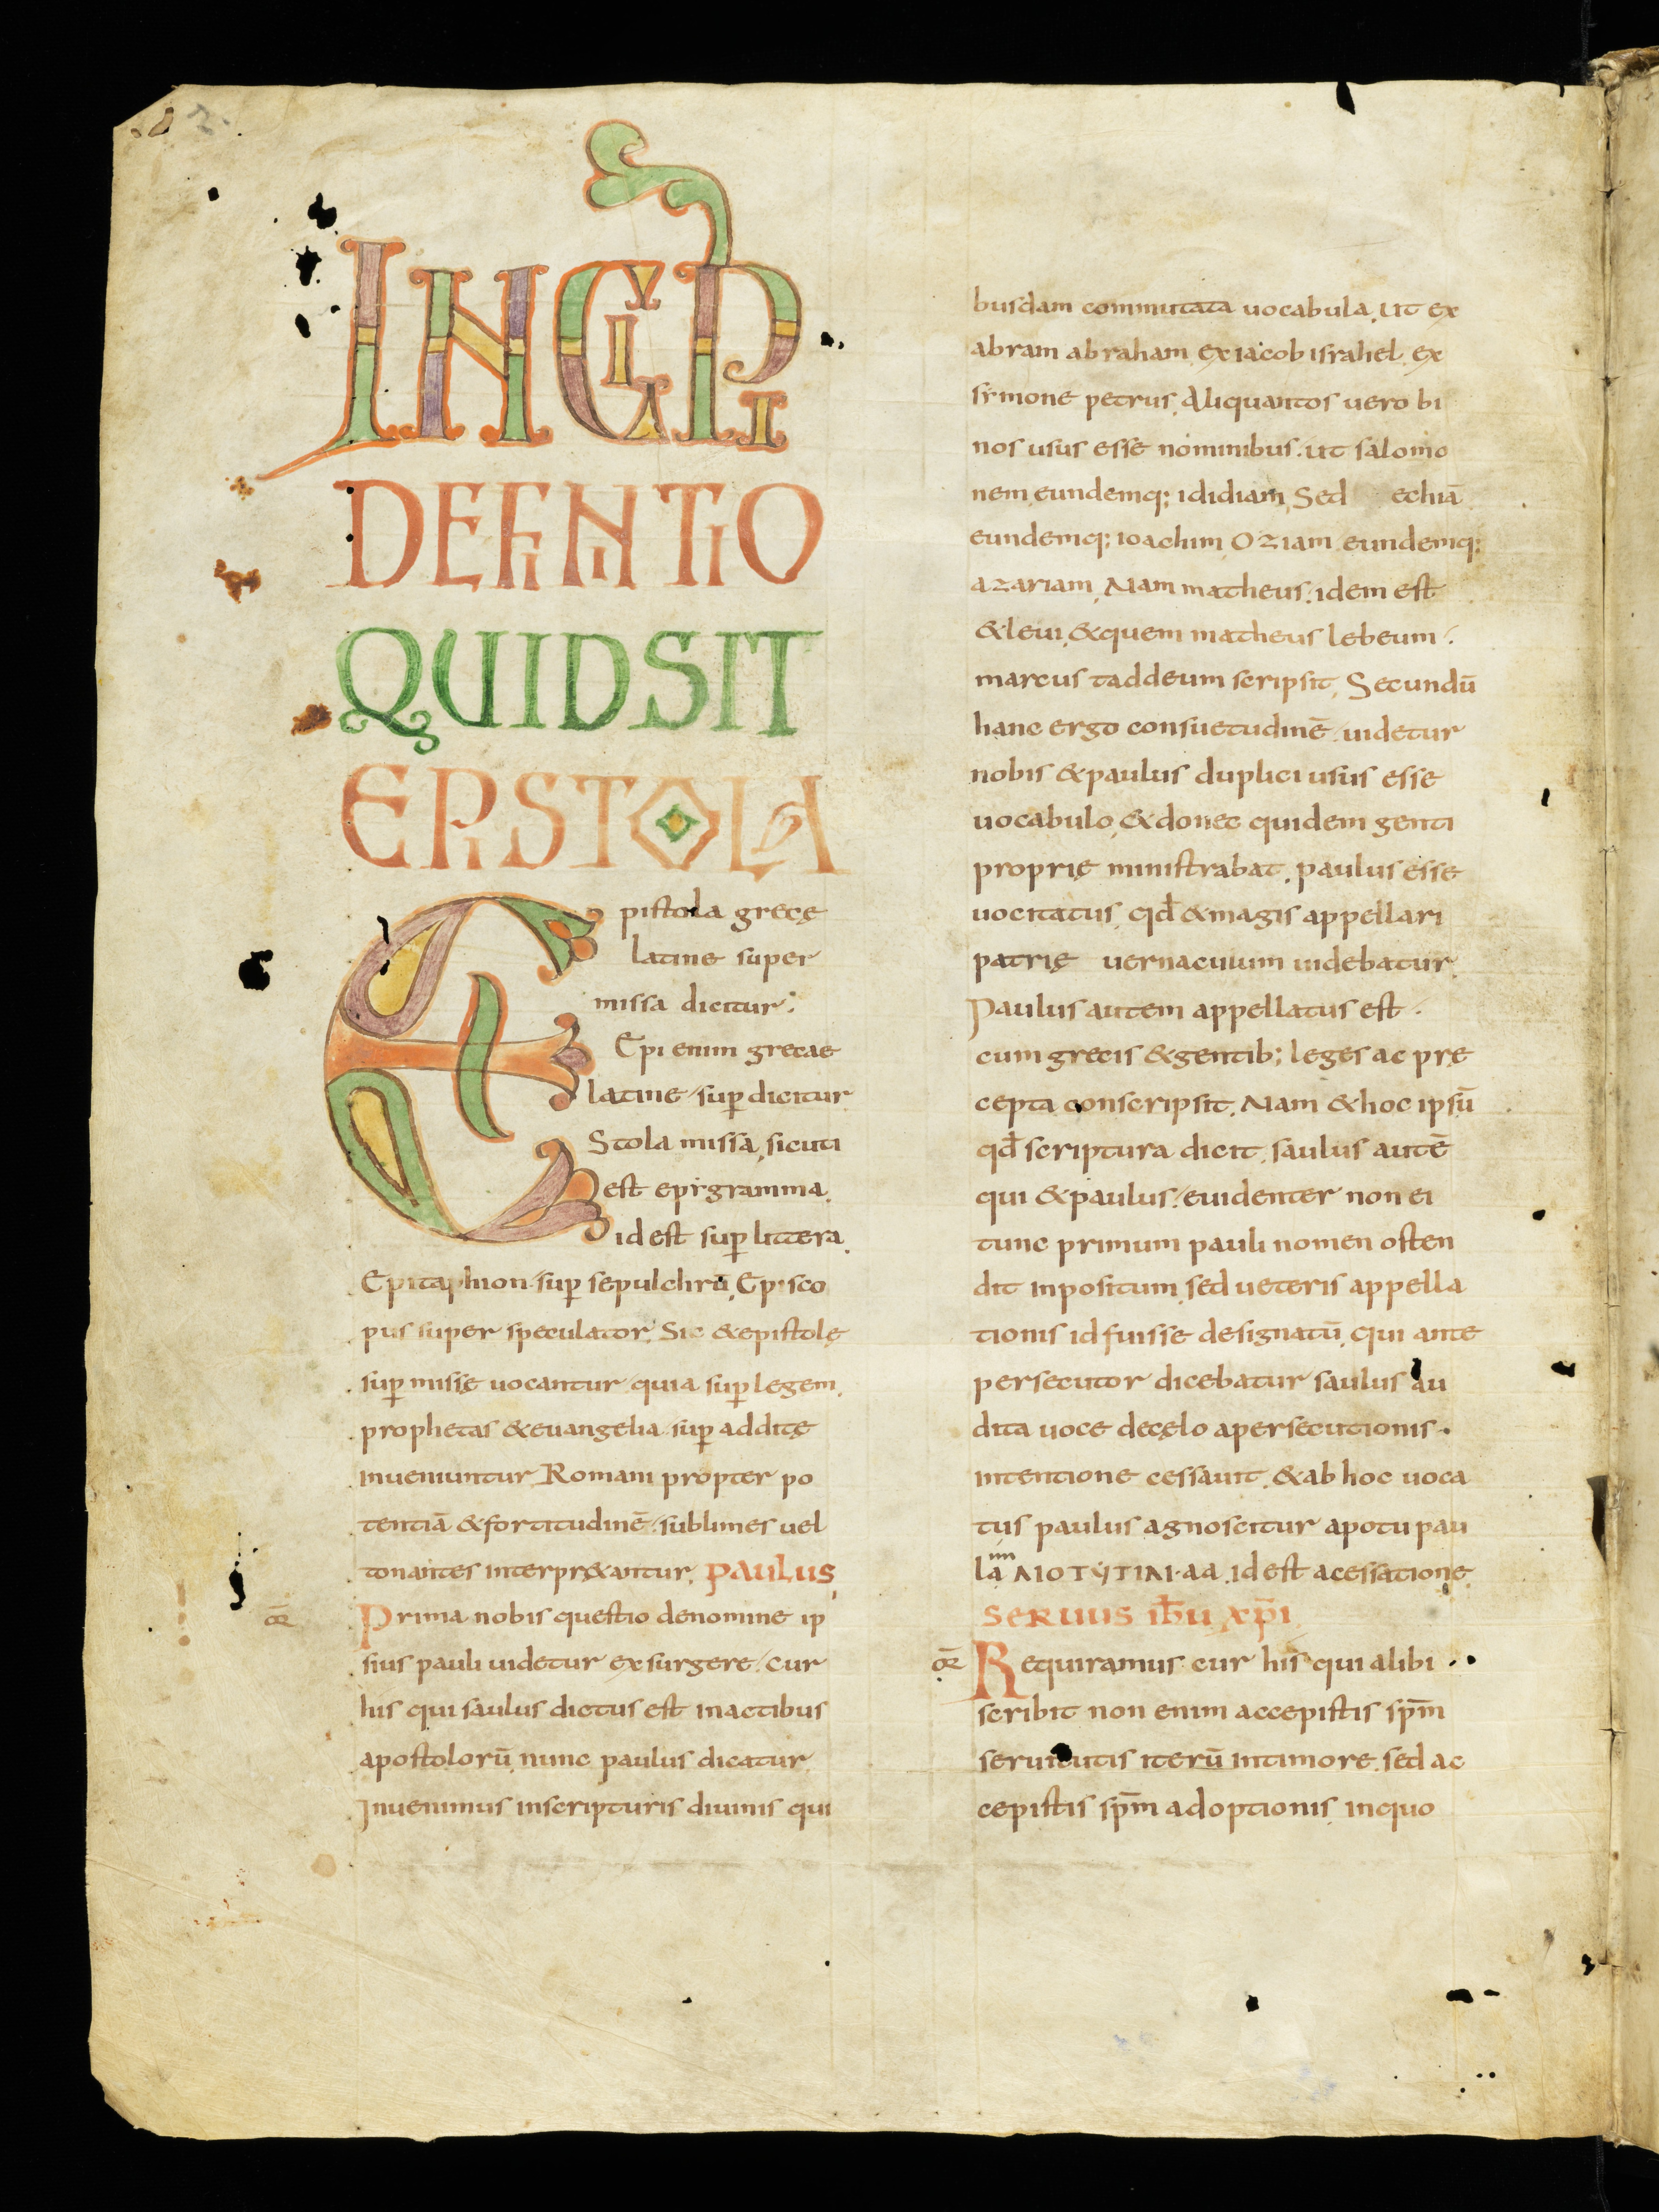 INCIPI
DEFINITIO
QUIDSIT
EPISTOLA
Epistola grecę
latine super
missa dicitur;
Epi enim grecae
latine sup̱ dicitur
Stola missa, sicuti
est epigramma.
id est sup̱ littera.
Epitaphion sup̱ sepulchrū, Episco
pus super speculator, Sic &epistolę
sup̱ missę uocantur quia sup̱ legem,
prophetas &euangelia sup̱ additę
inueniuntur, Romani propter po
tentiā &fortitudinē sublimes uel
tonantes interpr&antur, PAULUS,
Prima nobis questio denomine ip
sius pauli uidetur exsurgere, cur
his qui saulus dictus est inactibus
apostolorū, nunc paulus dicatur,
Inuenimus inscripturis diuinis qui
busdam commutata uocabula, ut ex
abram abraham, ex iacob israhel, ex
simone petrus, Aliquantos uero bi
nos usus esse nominibus, ut salomo
nem, eundemq; ididiam, Sed echiā
eundemq; ioachim, Oziam eundemq;
azariam, Nam matheus, idem est
&leui, &quem matheus lebeum,
marcus taddeum scripsit, Secundū
hanc ergo consuetudinē, uidetur
nobis &paulus duplici usus esse
uocabulo, &donec quidem genti
proprię ministrabat, paulus esse
uocitatus, qđ &magis appellari
patrię uernaculum uidebatur,
Paulus autem appellatus est,
cum grecis &gentib; leges ac prę
cepta conscripsit, Nam &hoc ipsū
qđ scriptura dicit, saulus autē
qui &paulus, euidenter non ei
tunc primum pauli nomen osten
dit inpositum, sed ueteris appella
tionis id fuisse designatū, qui ante
persecutor dicebatur saulus au
dita uoce decęlo apersecutionis
intentione cessauit, &ab hoc uoca
tus paulus agnoscitur apotu pau
la ΛΙΟΤΥΤΙΛΙ·aa, id est acessatione
SERUUS IHU XPI
or̄ Requiramus cur his qui alibi
scribit non enim accepistis sp̄m
seruitutis iterū intimore, sed ac
cepistis sp̄m adoptionis, inquo